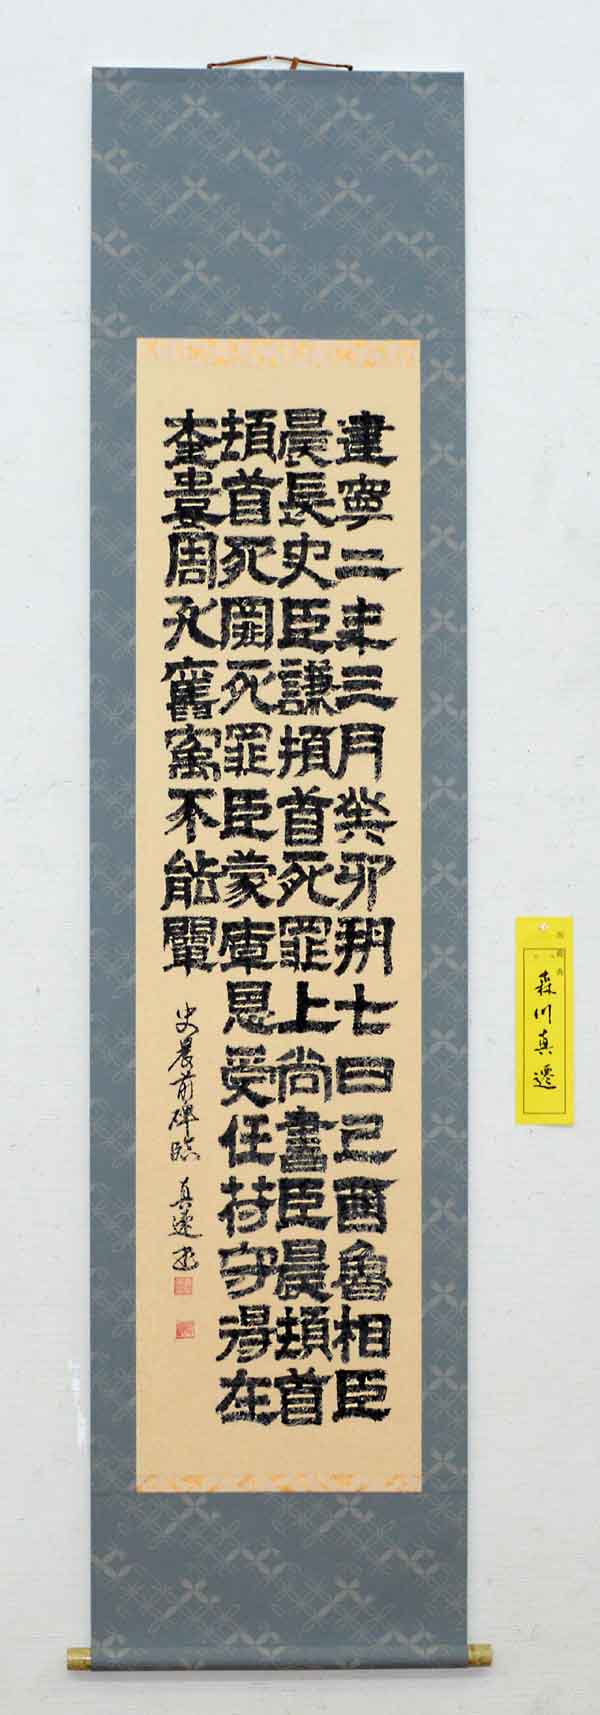 建寧二年三月癸卯朔七日己酉魯相臣
晨長史臣謙頓首死罪上尚書臣晨頓首
頓首死罪死罪臣蒙厚恩受任符守得在
奎婁周孔舊寓不能闡
史晨前碑臨 真遷書
森川真遷